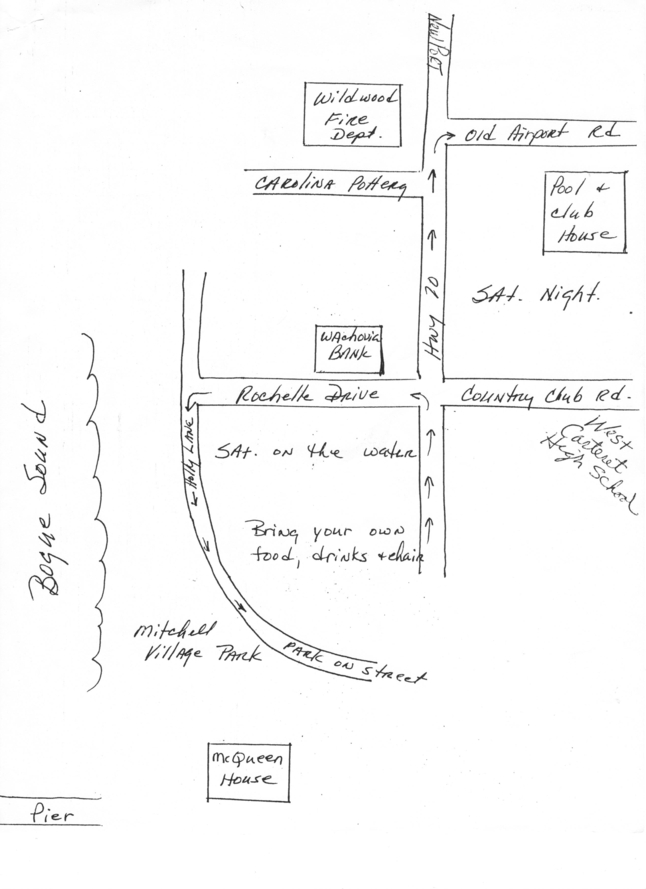 Newport
Wildwood
Fire
Dept.
Old Airport Rd
CAROLINA Pottery
Pool &
club
House
SAt. Night.
Hwy 70
WAchovia
BANK
Rochelle Drive
Country Club Rd.
West
Carteret
High School
Holly LANE
SAt. on the water
Bogue Sound
Bring your own
food, drinks & chair
Mitchell
Village PARK
PARK ON Street
McQueen
House
Pier